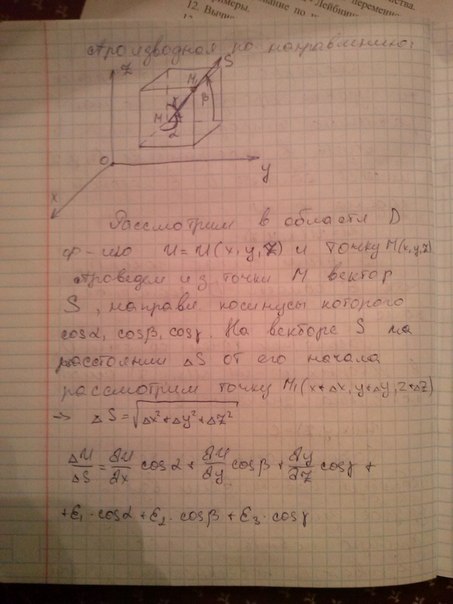 12. Вычис
Производная по направлению:
Z
S
M₁
β
M
α
O
y
x
Рассмотрим в области D
ф-ию U=U(x,y,Z) и точку M(x,y,Z)
Проведем из точки M вектор
S, направл. косинусы которого
cosα, cosβ, cosγ. На векторе S на
расстоянии ΔS от его начала
рассмотрим точку M₁(x+Δx, y+Δy, Z+ΔZ)
→ ΔS = √(Δx²+Δy²+ΔZ²)
ΔU/ΔS = ∂U/∂x cosα + ∂U/∂y cosβ + ∂y/∂Z cosγ +
+ε₁·cosα+ε₂·cosβ+ε₃·cosγ